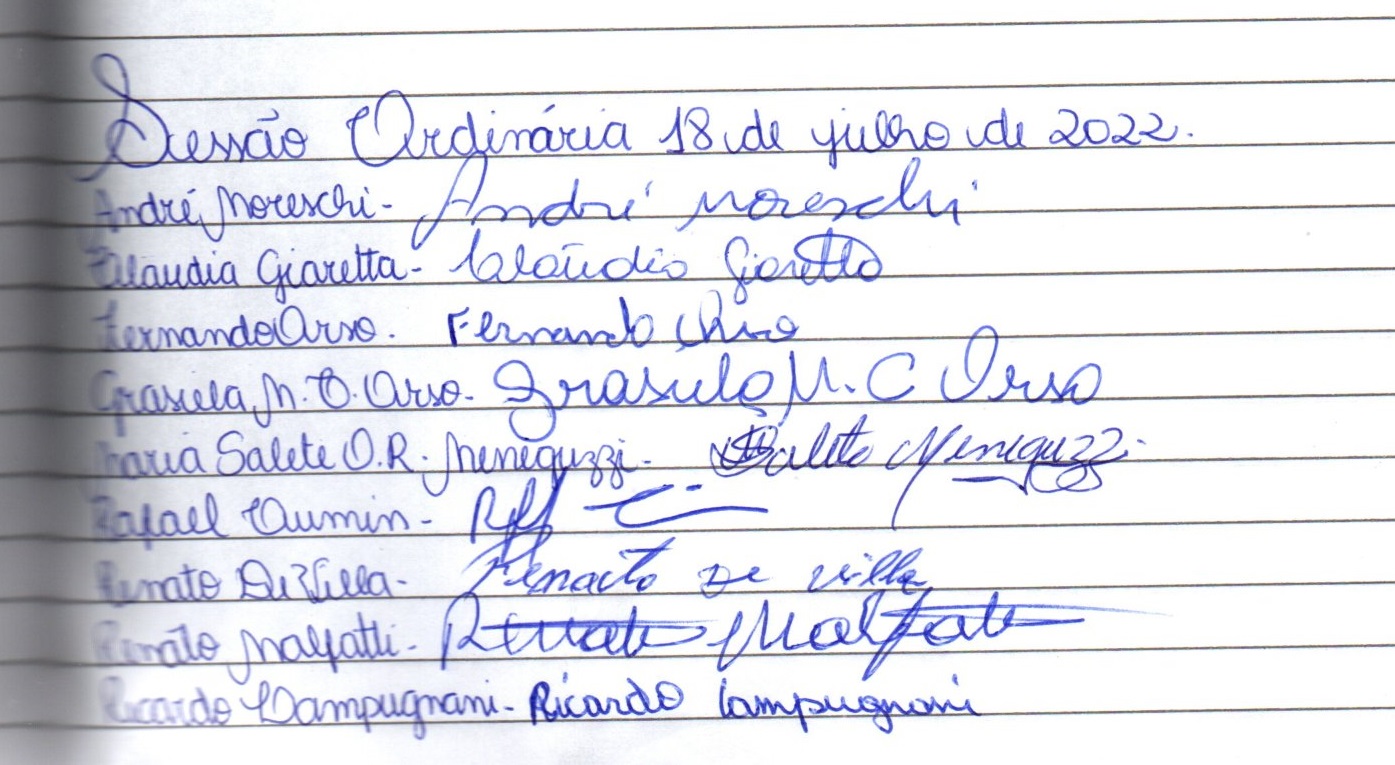 Sessão Ordinária 18 de julho de 2022.
André Moreschi - André Moreschi
Claudia Giaretta - Claúdia Giaretta
Fernando Orso. Fernando Orso
Grasiela M. C. Orso. Grasiela M. C Orso
Maria Salete O.R. Meneguzzi - Salete Meneguzzi
Rafael -
Renato De Villa - Renato De Villa
Renato Malfatti - Renato Malfatti
Ricardo Campugnani - Ricardo Campugnani